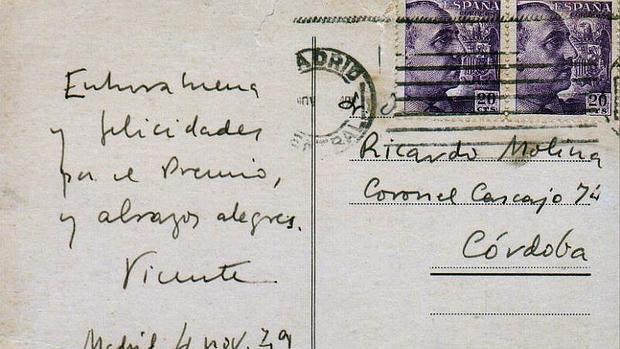 Enhorabuena
y felicidades
por el Premio,
y abrazos alegres.
Vicente
Madrid 4 nov.
MADRID
NOV
ESPAÑA
CORREOS
20
CTS
ESPAÑA
CORREOS
20
CTS
Ricardo Molina
Coronel Cascajo
Córdoba